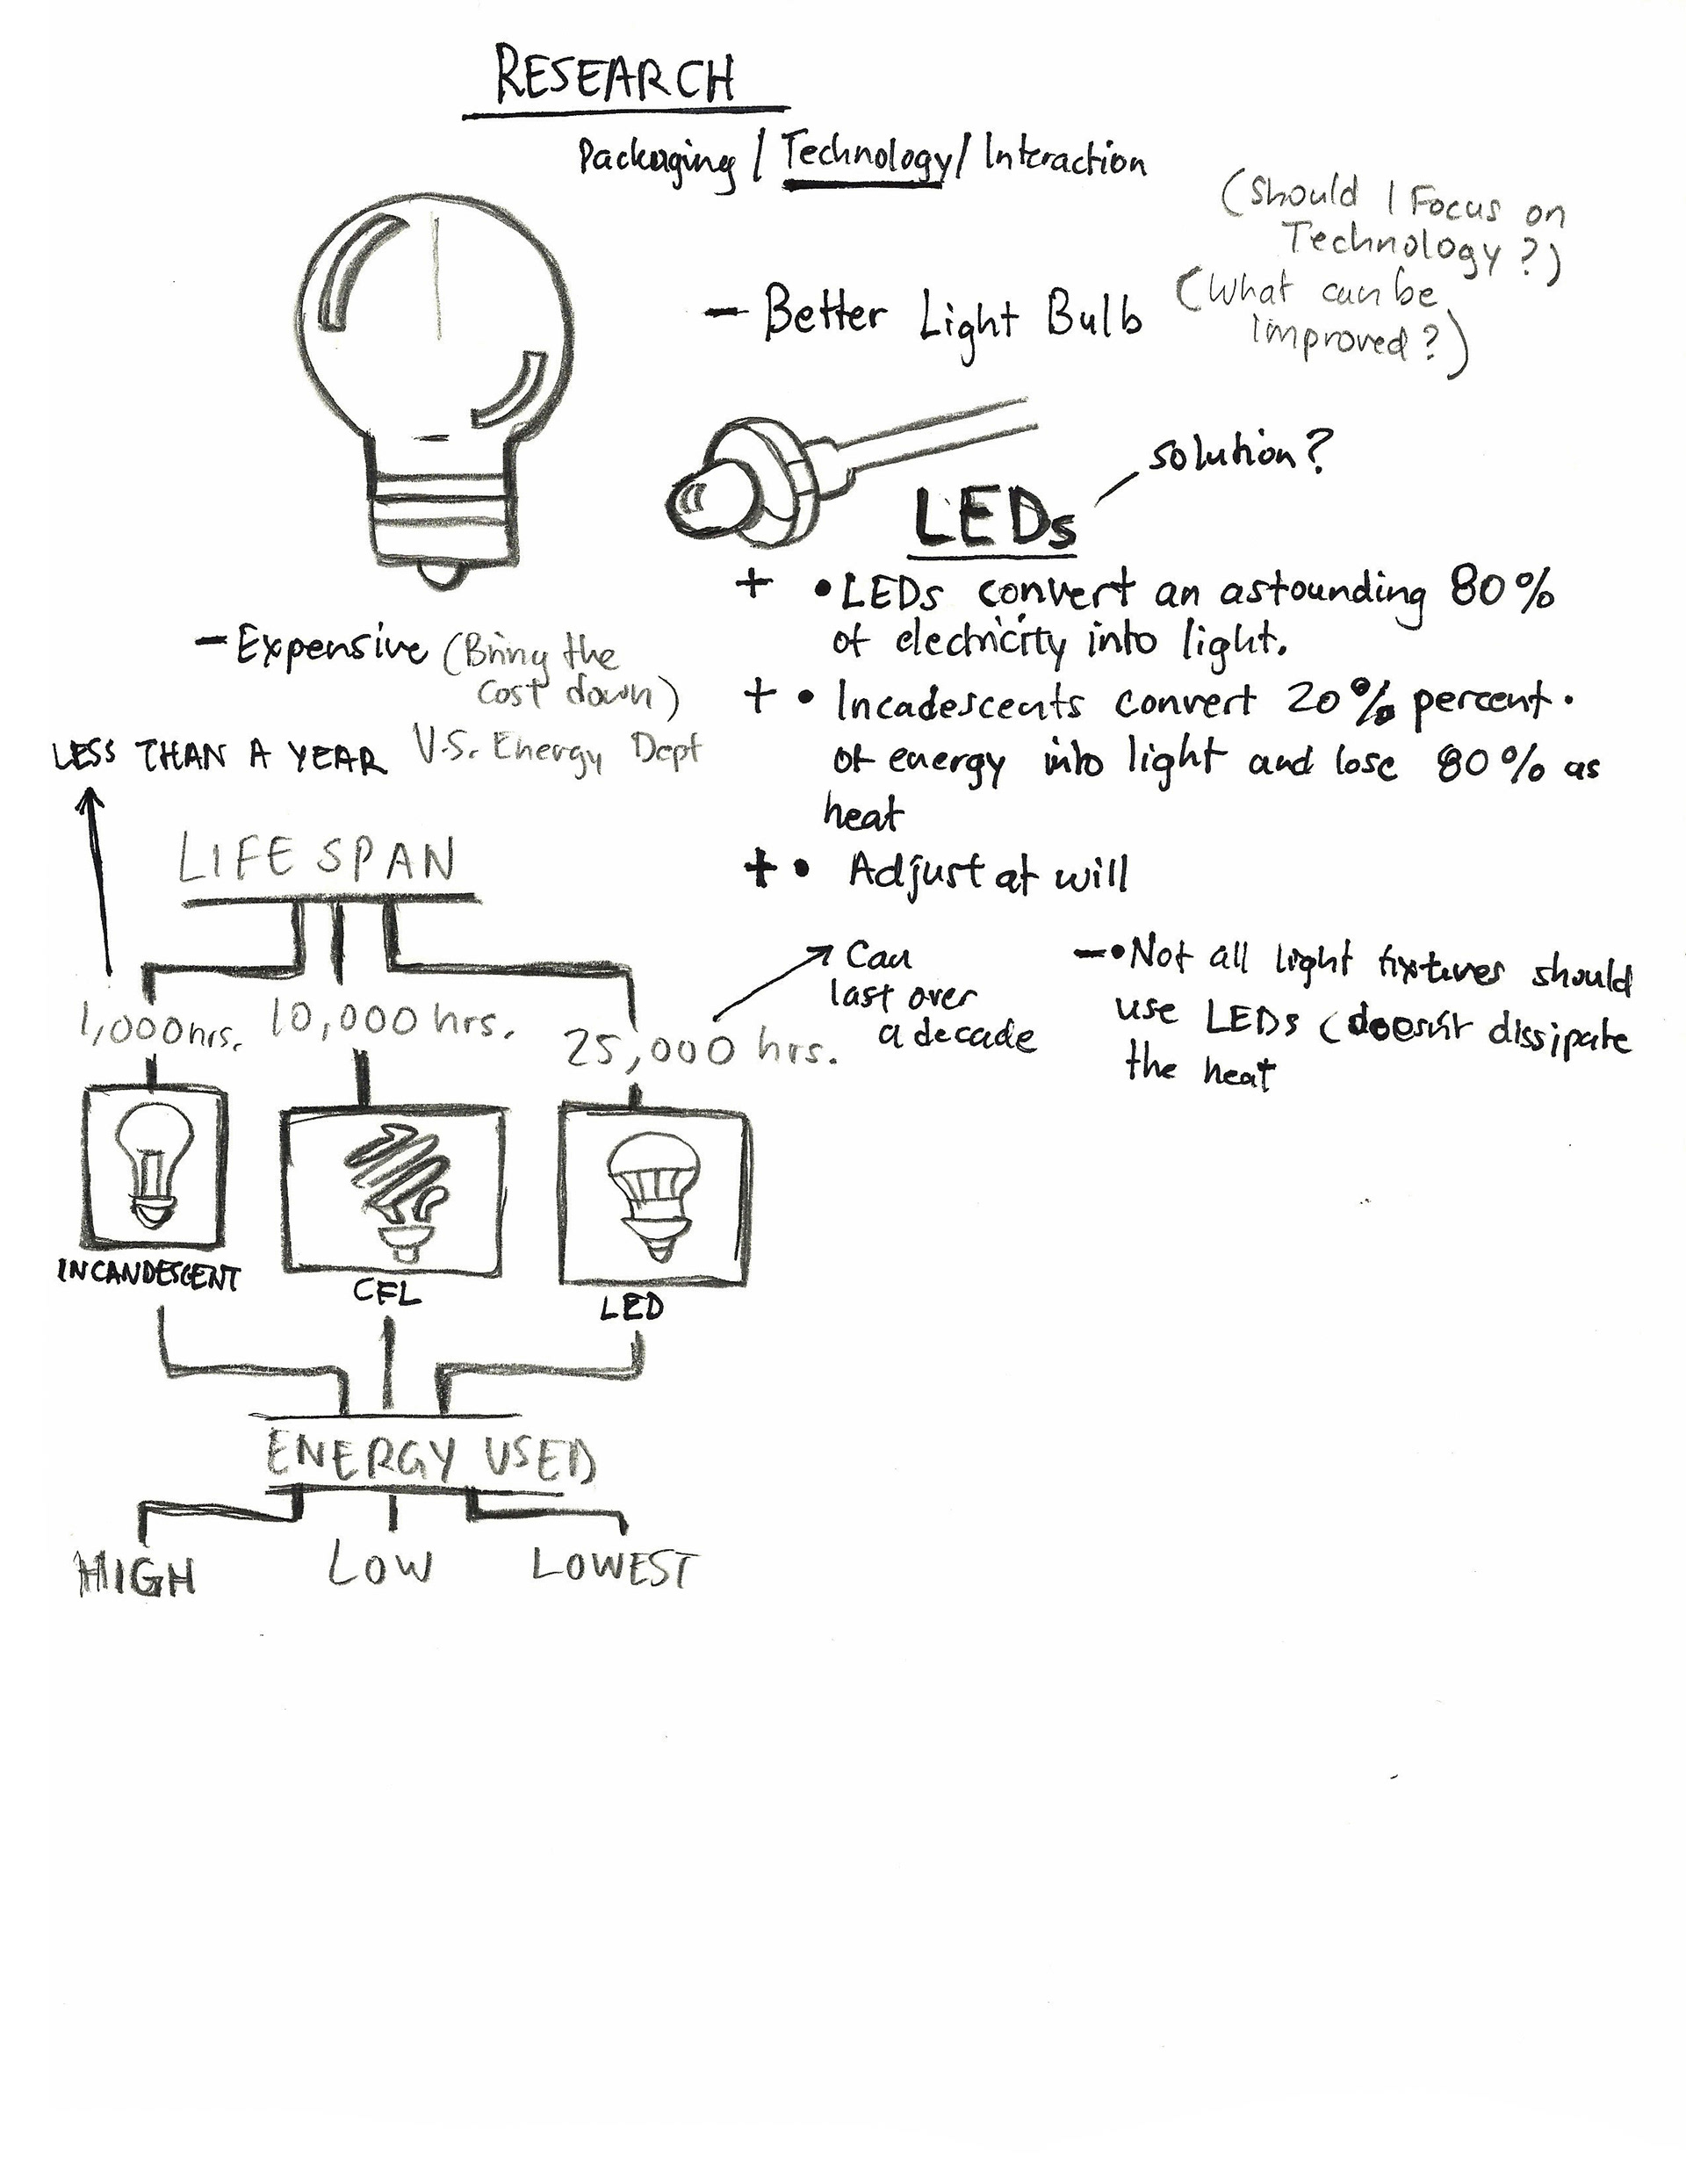 RESEARCH
Packaging / Technology / Interaction
(Should I Focus on
Technology?)
(What can be
improved?)
- Better Light Bulb
solution?
LEDs
+ • LEDs convert an astounding 80%
of electricity into light.
+ • Incadescents convert 20% percent.
of energy into light and lose 80% as
heat
+ • Adjust at will
- Expensive (Bring the
cost down)
LESS THAN A YEAR U.S. Energy Dept
LIFE SPAN
1,000 hrs. 10,000 hrs. 25,000 hrs.
Can
last over
a decade
- • Not all light fixtures should
use LEDs (doesn't dissipate
the heat
INCANDESCENT
CFL
LED
ENERGY USED
HIGH LOW LOWEST